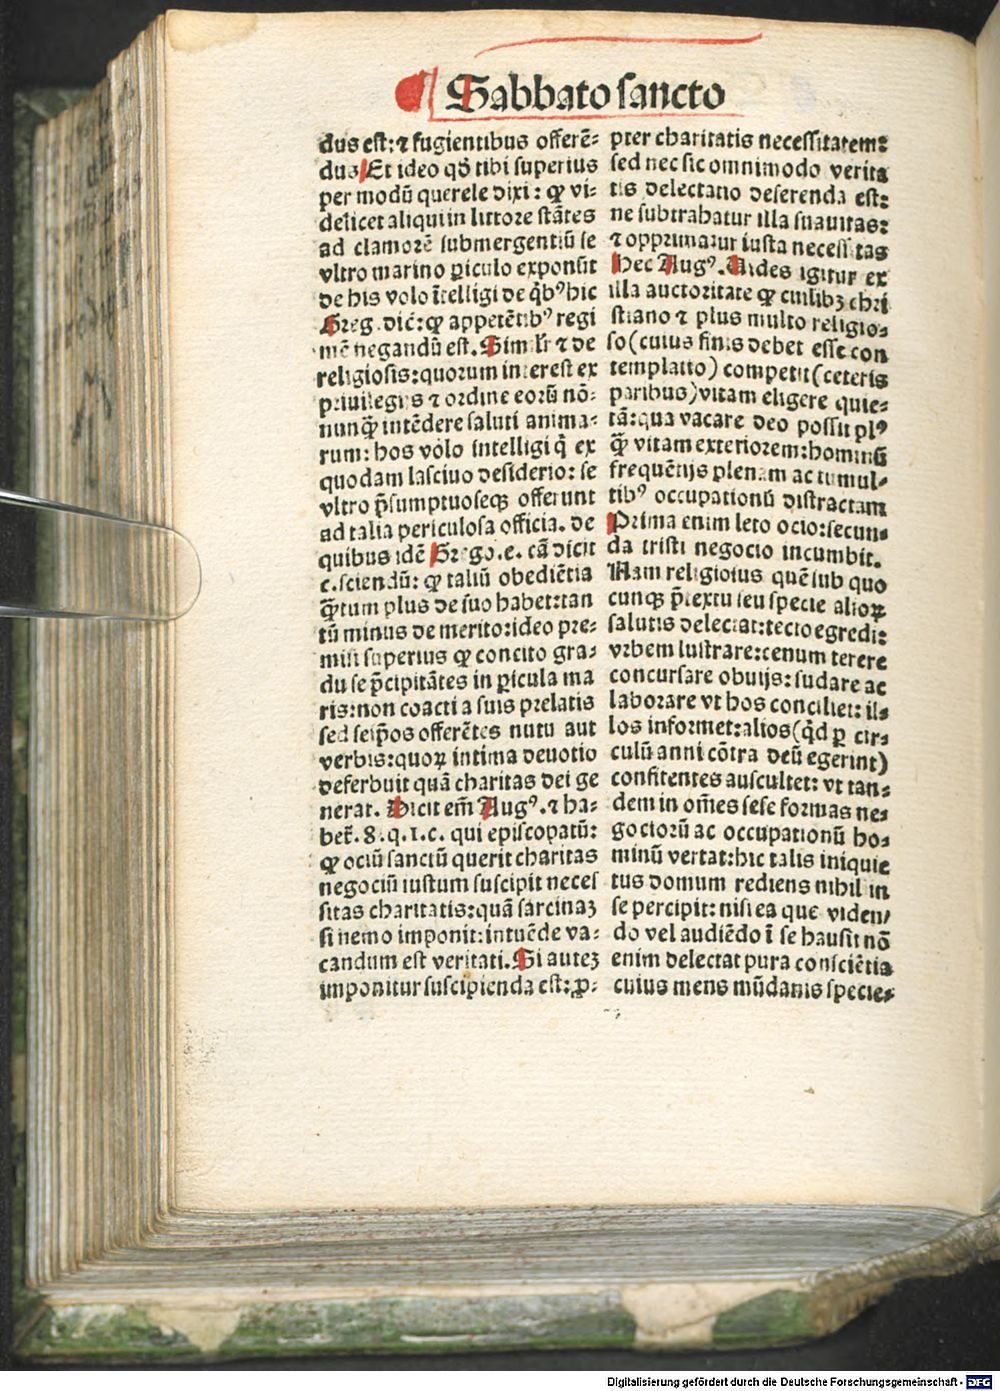 Sabbato sancto
dus est: ⁊ fugientibus offerē-
duȝ Et ideo qď tibi superius
per modū querele dixi: ꝙ vi-
delicet aliqui in littore stātes
ad clamorē submergentiū se
vltro marino ꝑiculo exponūt
de his volo ītelligi de qͥbꝰ hic
Greg. dic̄: ꝙ appetētibꝰ regi
mē negandū est. Simılr̄ ⁊ de
religiosis: quorum interest ex
priuilegijs ⁊ ordine eorū nō-
nunꝙ̄ intēdere saluti anima-
rum: hos volo intelligi q̄ ex
quodam lasciuo desiderio: se
vltro p̄sumptuoseqꝫ offerunt
ad talia periculosa officia. de
quibus idē Grego. e. cā dicit
c. sciendū: ꝙ taliū obediētia
ꝙ̄tum plus de suo habet: tan
tū minus de merito: ideo pre-
misi superius ꝙ concito gra-
du se p̄cipitātes in ꝑicula ma
ris: non coacti a suis prelatis
sed seip̄os offerētes nutu aut
verbis: quoꝝ intima deuotio
deferbuit quā charitas dei ge
nerat. Dicit em̄ Augꝰ. ⁊ ha-
bet̄. 8. q. 1. c. qui episcopatū:
ꝙ ociū sanctū querit charitas
negociū iustum suscipit neces
sitas charitatis: quā sarcinaȝ
si nemo imponit: intuēde va-
candum est veritati. Si auteȝ
imponitur suscipienda est: ꝓ-
pter charitatis necessitatem:
sed nec sic omnimodo verita
tis delectatio deserenda est:
ne subtrahatur illa suauitas:
⁊ opprimatur iusta necessitas
Hec Augꝰ. Uides igitur ex
illa auctoritate ꝙ cuilibȝ chri
stiano ⁊ plus multo religio-
so (cuius finis debet esse con
templatio) competit (ceteris
paribus) vitam eligere quie-
tā: qua vacare deo possit plꝰ
ꝙ̄ vitam exteriorem: hominū
frequētijs plenam ac tumul-
tibꝰ occupationū distractam
Prima enim leto ocio: secun-
da tristi negocio incumbit.
Nam religiosus quē sub quo
cunqꝫ p̄textu seu specie alioꝝ
salutis delectat: tecto egredi:
vrbem lustrare: cenum terere
concursare obuijs: sudare ac
laborare vt hos conciliet: il-
los informet: alios (qͥd ꝑ cir-
culū anni cōtra deū egerint)
confitentes auscultet: vt tan-
dem in om̄es sese formas ne-
gociorū ac occupationū ho-
minū vertat: hic talis iniquie
tus domum rediens nihil in
se percipit: nisi ea que viden/
do vel audiēdo ī se hausit nō
enim delectat pura consciētia
cuius mens mūdanis specie-
Digitalisierung gefördert durch die Deutsche Forschungsgemeinschaft - DFG